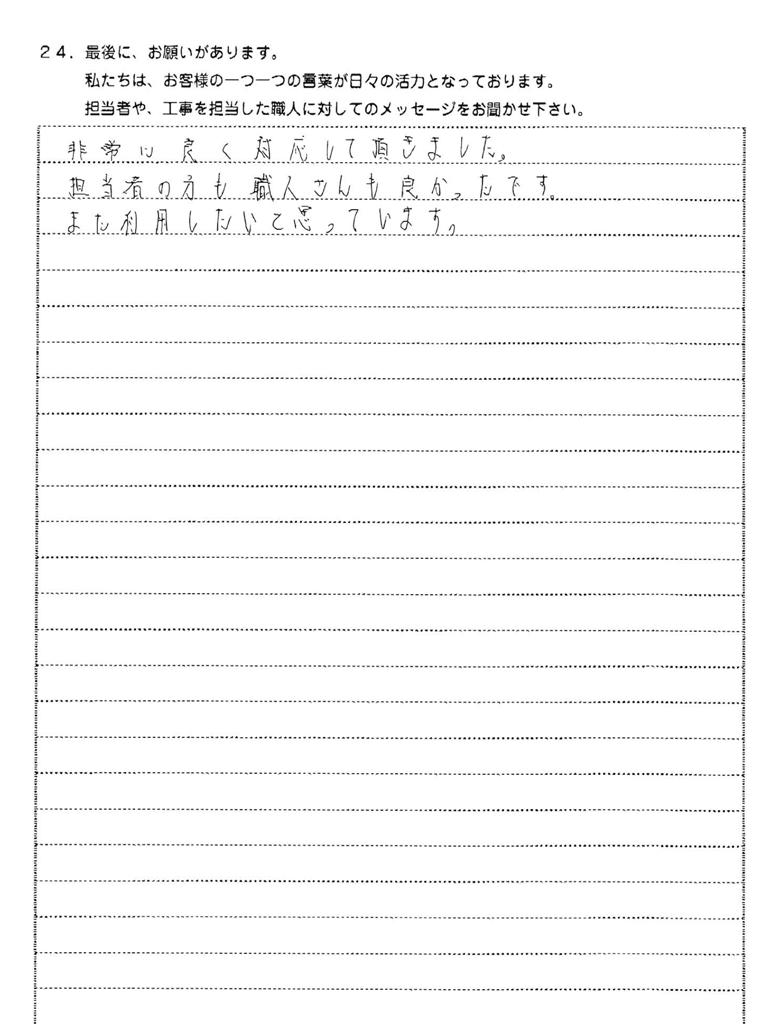 24．最後に、お願いがあります。
私たちは、お客様の一つ一つの言葉が日々の活力となっております。
担当者や、工事を担当した職人に対してのメッセージをお聞かせ下さい。
非常に良く対応して頂きました。
担当者の方も職人さんも良かったです。
また利用したいと思っています。